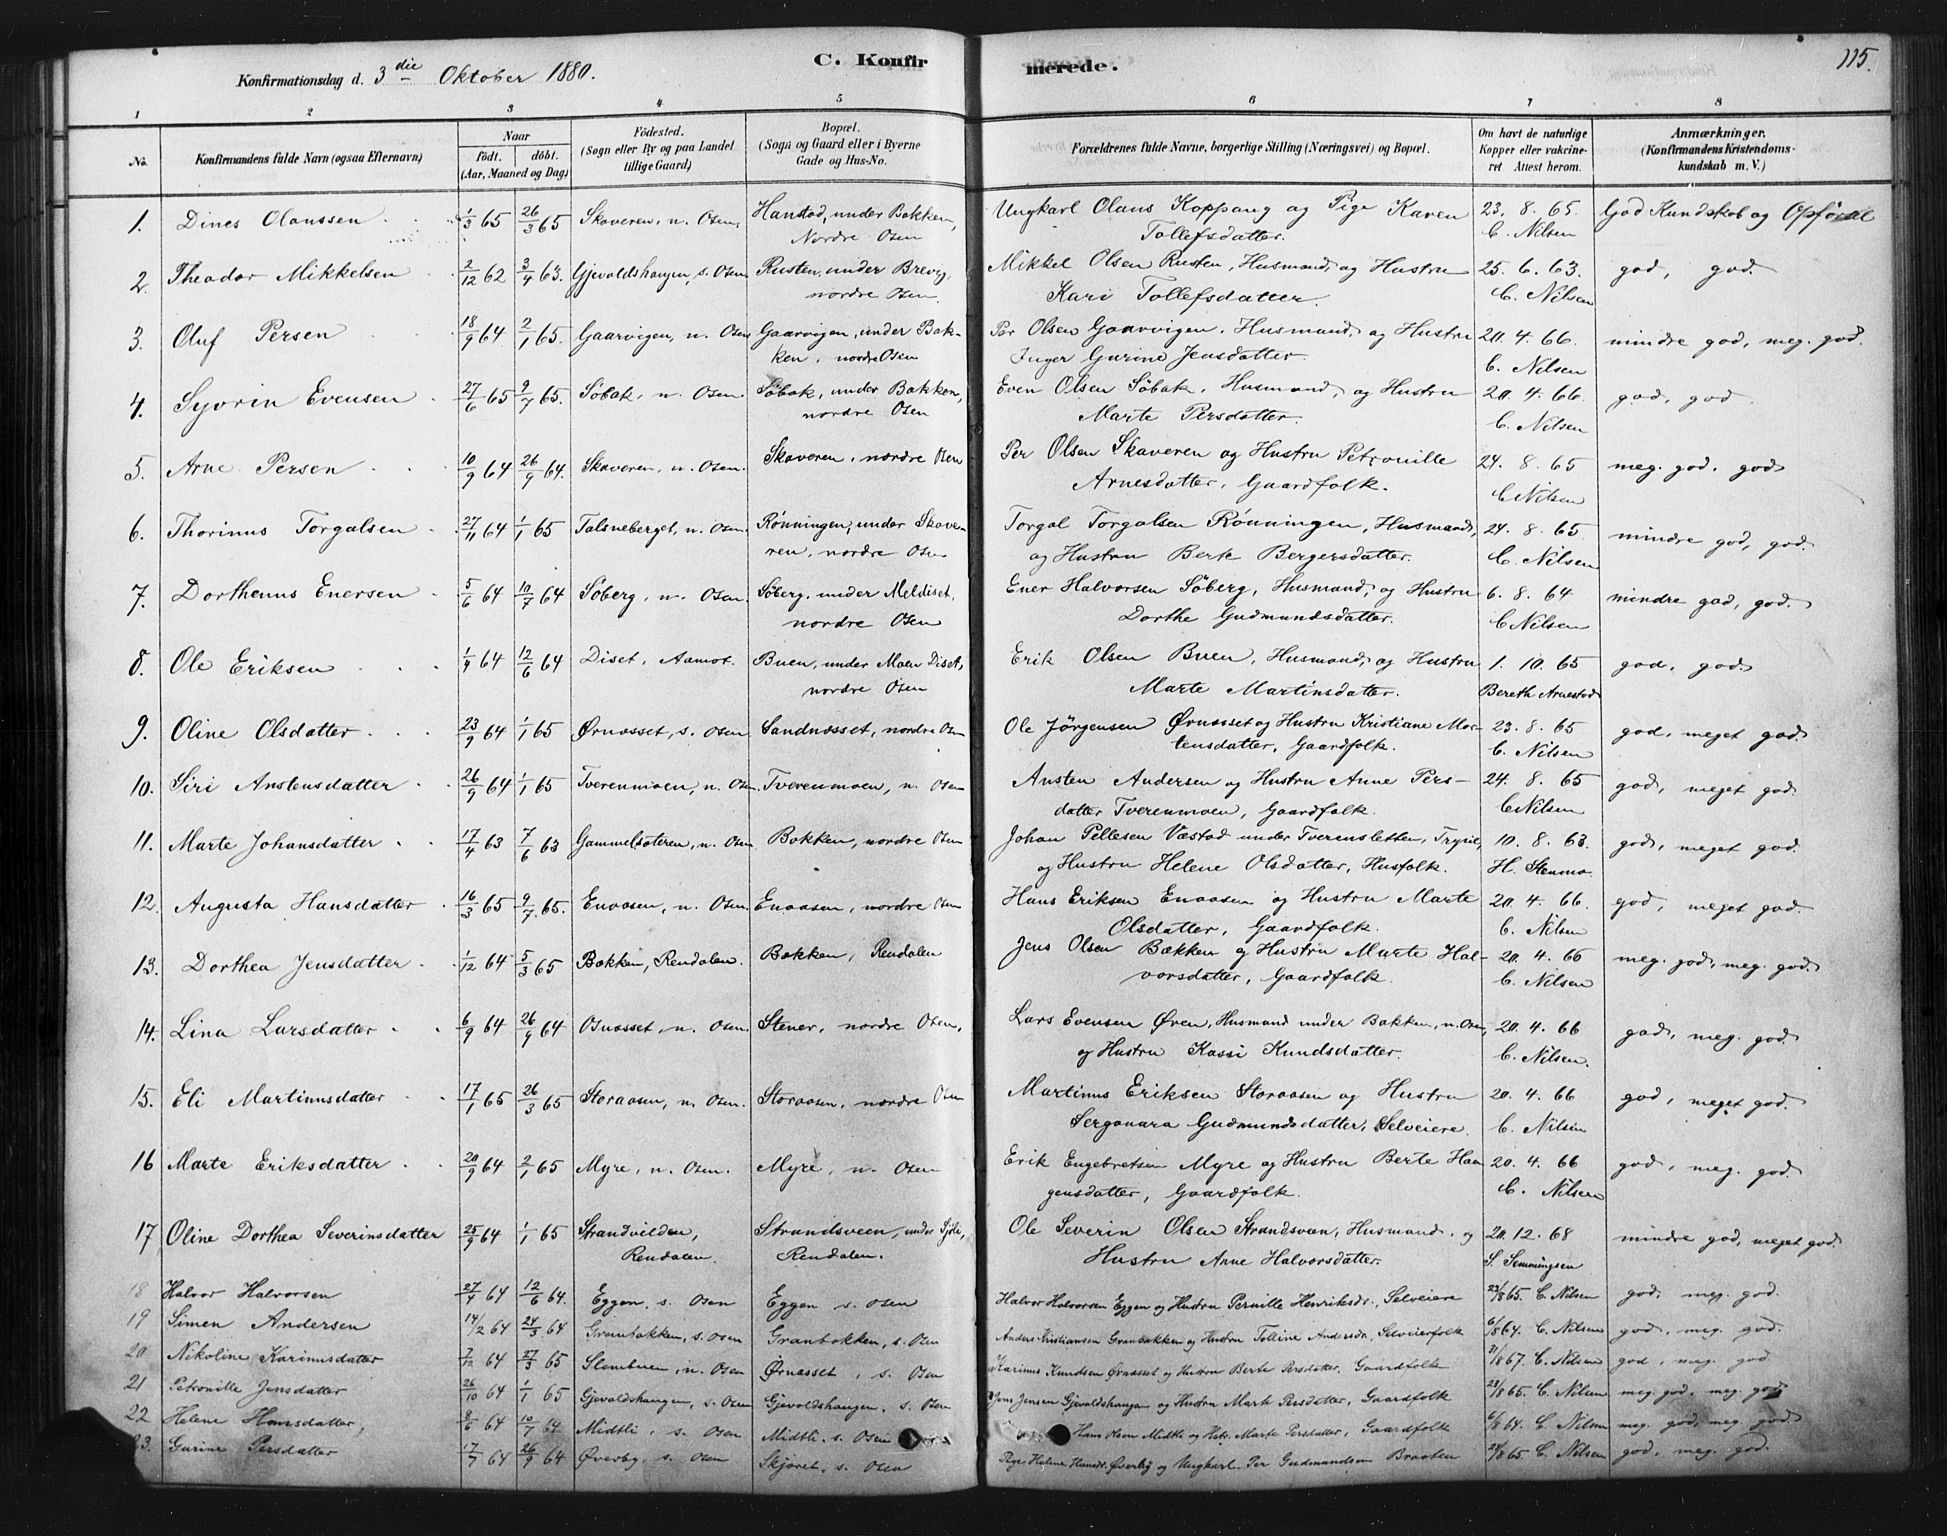 115.
C. Konfirmerede.
Konfirmationsdag d. 3die Oktober 1880.
1 2 3 4 5 6 7 8
No. Konfirmandens fulde Navn (ogsaa Efternavn) Naar født. døbt. (Aar, Maaned og Dag) Fødested. (Sogn eller By og paa Landet tillige Gaard) Bopæl. (Sogn og Gaard eller i Byerne Gade og Hus-No. Forældrenes fulde Navne, borgerlige Stilling (Næringsvei) og Bopæl. Om havt de naturlige Kopper eller vakcineret Attest herom. Anmærkninger. (Konfirmandens Kristendomskundskab m. V.)
1. Dines Olaussen 1/3 65 26/3 65 Skaveren, n. Osen. Hanstad, under Bakken, Nordre Osen Ungkarl Olaus Koppang og Pige Karen Tollefsdatter. 23. 8. 65. C. Nilsen God Kundskab og Opførsel
2. Theodor Mikkelsen 2/12 62 3/4 63. Gjevaldshaugen, s. Osen Rusten, under Brevig, nordre Osen. Mikkel Olsen Rusten, Husmand, og Hustru Kari Tollefsdatter. 25. 6. 63. C. Nilsen god, god.
3. Oluf Persen 18/9 64 2/1 65. Gaarvigen, n. Osen Gaarvigen, under Bakken, nordre Osen Per Olsen Gaarvigen, Husmand, og Hustru Inger Gurine Jensdatter. 20. 4. 66. C. Nilsen mindre god, meg. god.
4. Syvrin Evensen 27/6 65 9/7 65. Søbak, n. Osen. Søbak, under Bakken, nordre Osen Even Olsen Søbak, Husmand, og Hustru Marte Persdatter. 20. 4. 66. C. Nilsen god, god.
5. Arne Persen 10/9 64 26/9 64. Skaveren, n. Osen. Skaveren, nordre Osen Per Olsen Skaveren og Hustru Petronille Arnesdatter, Gaardfolk. 24. 8. 65 C. Nilsen meg. god, god
6. Thorinus Torgalsen 27/11 64 1/1 65 Talsneberget, n. Osen. Rønningen, under Skaveren, nordre Osen Torgal Torgalsen Rønningen, Husmand, og Hustru Berte Bergersdatter. 24. 8. 65 C. Nilsen mindre god, god.
7. Dorthenus Enersen 5/6 64 10/7 64 Søberg, n. Osen. Søberg, under Meldiset, nordre Osen Ener Halvorsen Søberg, Husmand, og Hustru Dorthe Gudmundsdatter. 6. 8. 64 C. Nilsen mindre god, god.
8. Ole Eriksen 1/4 64 12/6 64 Diset, Aamot. Buen, under Moen Diset, nordre Osen Erik Olsen Buen, Husmand, og Hustru Marte Martinsdatter. 1. 10. 65 Bereth Arnestad god, god.
9. Oline Olsdatter 23/9 64 1/1 65 Ørnæsset, s. Osen Sandnæsset, nordre Osen Ole Jørgensen Ørnæsset og Hustru Kristiane Mortensdatter, Gaardfolk. 23. 8. 65 C. Nilsen god, meget god.
10. Siri Anstensdatter 26/9 64 1/1 65 Tverenmoen, n. Osen Tverenmoen, n. Osen Ansten Andersen og Hustru Anne Persdatter Tverenmoen, Gaardfolk. 24. 8. 65 C. Nilsen god, meget god.
11. Marte Johansdatter 17/4 63 7/6 63 Gammelsæteren, n. Osen Bakken, nordre Osen Johan Pellesen Væstad under Tverensletten, Trysil, og Hustru Helene Olsdatter, Husfolk. 10. 8. 63. H. Stenmo. god, meget god.
12. Augusta Hansdatter 16/3 65 9/7 65. Enaasen, n. Osen. Enaasen, nordre Osen Hans Eriksen Enaasen og Hustru Marte Olsdatter, Gaardfolk. 20. 4. 66. C. Nilsen god, meget god.
13. Dorthea Jensdatter 1/12 64 5/3 65 Bækken, Rendalen. Bækken, Rendalen Jens Olsen Bækken og Hustru Marte Halvorsdatter, Gaardfolk. 20. 4. 66 C. Nilsen meg. god, meg. god.
14. Lina Larsdatter 6/9 64 26/9 64 Osnæsset, n. Osen. Stener, nordre Osen, Lars Evensen Øren, Husmand under Bakken, n. Osen, og Hustru Kassi Knudsdatter. 20. 4. 66 C. Nilsen. god, meg. god.
15. Eli Martinusdatter 17/1 65 26/3 65 Storaasen, n. Osen. Storaasen, nordre Osen Martinus Eriksen Storaasen og Hustru Sergonara Gudmundsdatter, Selveiere. 20. 4. 66 C. Nilsen god, meget god.
16 Marte Eriksdatter 20/9 64 2/1 65 Myre, n. Osen. Myre, n. Osen Erik Engebretsen Myre og Hustru Berte Haagensdatter, Gaardfolk. 20. 4. 66 C. Nilsen god, meg. god.
17 Oline Dorthea Severinsdatter 25/9 64 1/1 65 Strandvelden, Rendalen. Strandsveen, under Sjøli, Rendalen. Ole Severin Olsen Strandsveen, Husmand, og Hustru Anne Halvorsdatter. 20. 12. 68 S. Semmingsen mindre god, meget god.
18 Halvor Halvorsen 27/4 64 12/6 64. Eggen, s. Osen Eggen s. Osen Halvor Halvorsen Eggen og Hustru Pernille Henriksdr., Selveiere 23/8 65. C. Nilsen god, meg. god.
19 Simen Andersen 14/2 64 24/3 64 Granbakken, s. Osen Granbakken, s. Osen Anders Kristiansen Granbakken og Hustru Tolline Andersdr, Selveierfolk 6/8 64. C. Nilsen god, meg. god.
20 Nikoline Karinusdatter 7/12 64 27/3 65 Slemburen, n. Osen Ørnæsset, s. Osen Karinus Knudsen Ørnæsset og Hustru Berte Persdatter, Gaardfolk 21/8 67. C. Nilsen god, meg. god
21 Petronille Jensdatter 26/10 64 1/1 65 Gjevaldshaugen, s. Osen Gjevaldshaugen, s. Osen Jens Jensen Gjevaldshaugen og Hustru Marte Persdatter, Gaardfolk 23/8 65. C. Nilsen meg. god, meg. god
22 Helene Hansdatter, 8/6 64 10/7 64 Midtli, s. Osen Midtli, s. Osen Hans Olsen Midtli og Hstr. Marte Persdatter, Gaardfolk 6/8 64. C. Nilsen meg. god, meg. god.
23. Gurine Persdatter 17/7 64 26/9 64 Øverby, s. Osen Skjæret, s. Osen Pige Helene Hansdr. Øverby og Ungkarl Per Gudmundsen Braaten 24/8 65. C. Nilsen god, meg. god.